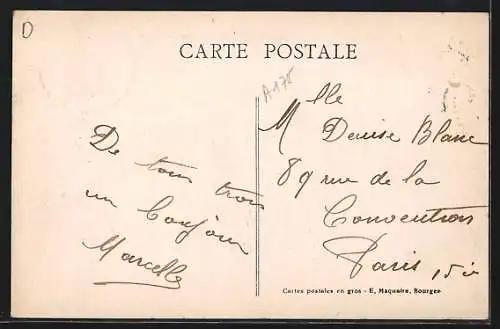 D
CARTE POSTALE
A175
De tous trois
un bonjour
Marcelle
Mlle
Denise Blanc
89 rue de la
Convention
Paris, 15è
Cartes postales en gros - E. Maquaire, Bourges